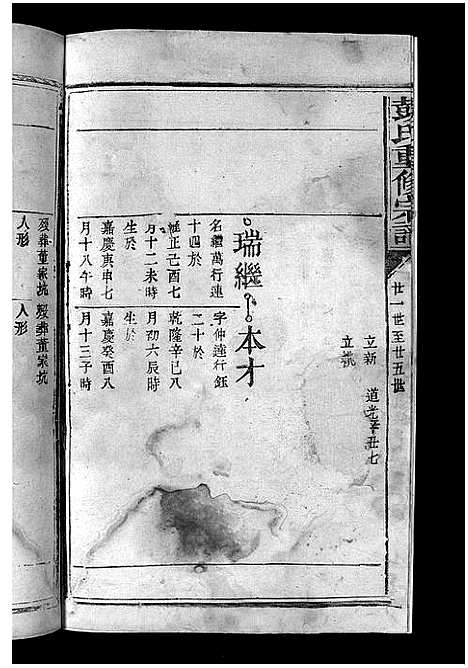 彭氏重修宗譜
廿一世至廿五世
立新 道光辛丑七
立
瑞繼
名纘萬行連
十四於
雍正己酉七
月十二未時
生於
嘉慶庚申七
月十八午時
本才
字仲達行鈺
二十於
乾隆辛巳八
月初六辰時
生於
嘉慶癸酉八
月十三子時
歿葬董家坑
人形
歿葬董家坑
人形